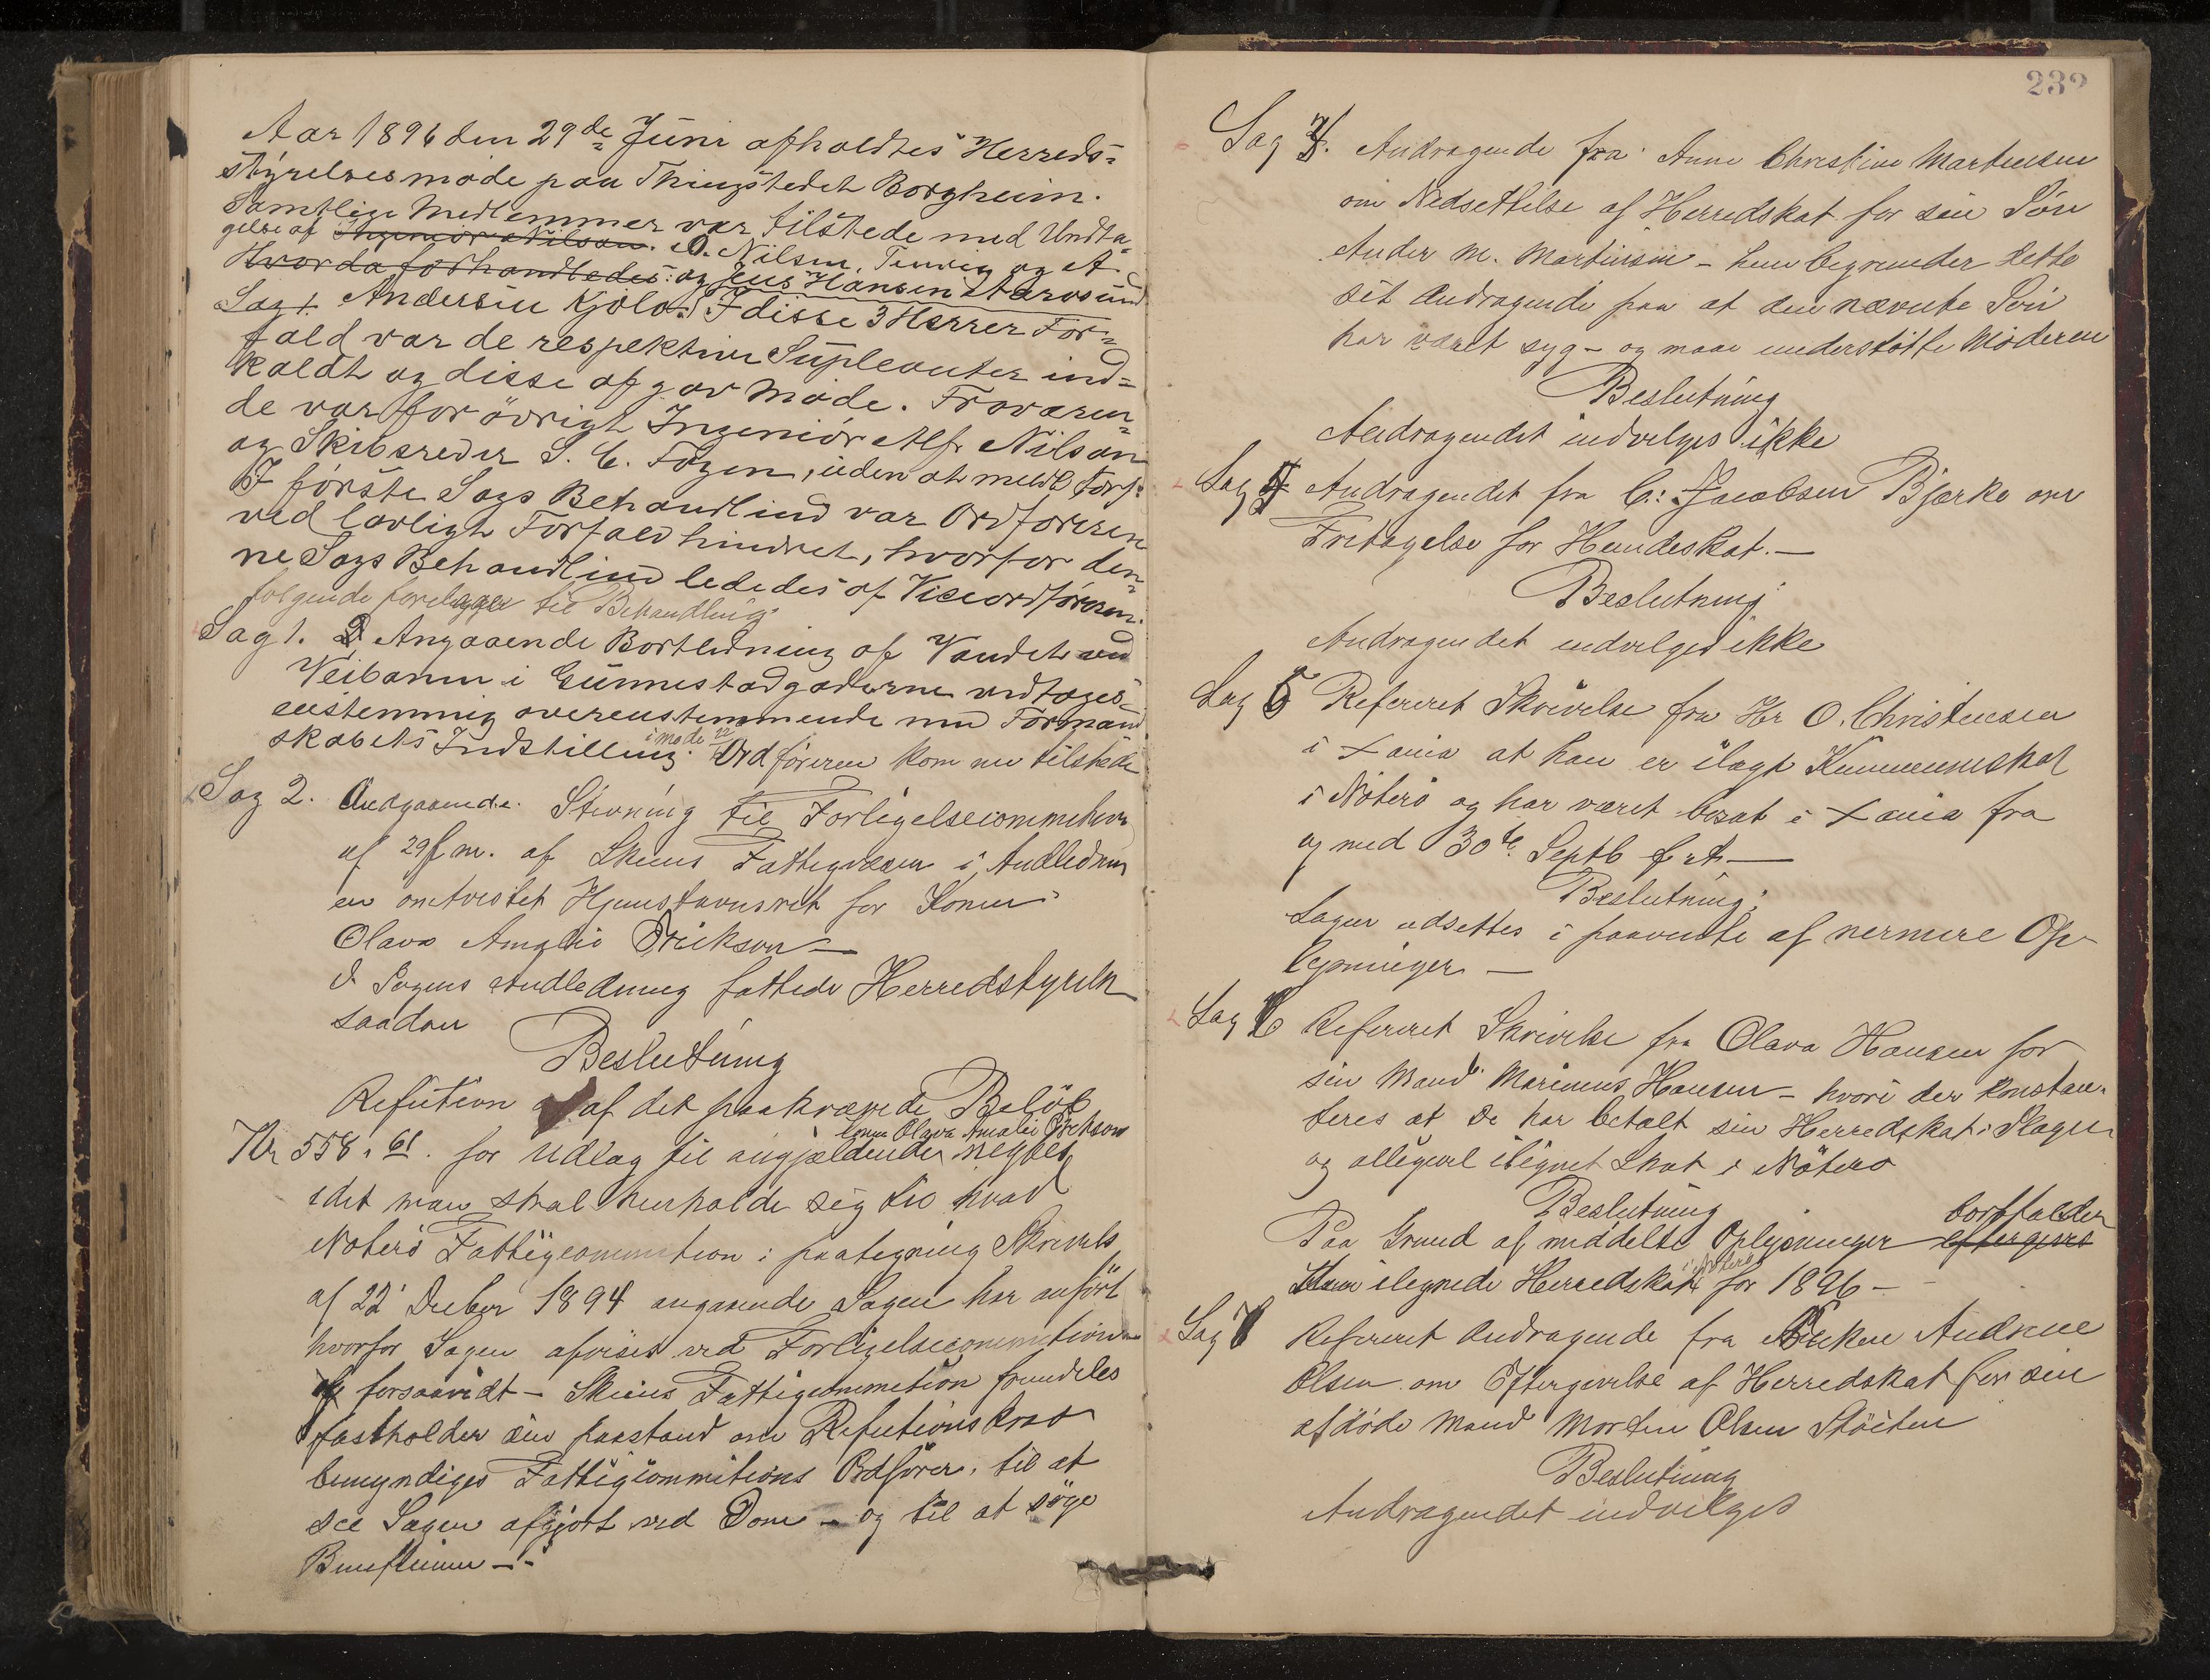 Aar 1896 den 29de Juni afholdtes Herreds-
styrelsesmøde paa Thingstedet Borgheim.
Samtlige Medlemmer var tilstede med Undta-
gelse af Ingeniør Nilson. O. Nilsen, og A.
Hvorda forhandledes: og Jens Hansen Aarøsund
Sag 1. Andersen Kjølø. I disse 3 Herrer For-
fald var de respektive Supleanter ind-
kaldt og disse afgav Møde.
de var for øvrigt Ingeniør Alf Nilson
og Skibsreder S. C. Føyen, uden at melde Forf.
I første Sags Behandlind var Ordføreren
ved lovligt Forfald hindret, hvorfor den-
ne Sags Behandlind lededes af Viceordføreren.
følgende forelagges til Behandling
Sag 1. Angaaende Bortledning af Vandet ved
Veibanen i Gunnestadgaderne vedtoges
enstemmig overensstemmende med Formand
skabets Indstilling i møde 22 Ordføreren kom nu tilstede
Sag 2. Andgaaende Stevning til Forligelsecommition
af 29 f.m. af Skiens Fattigvæsen i Andledning
en omtvistet Hjemstavnsret for Konen
Olava Amalie Erikson —
I Sagens Andledning fattede Herredstyrelsen
saadan
Beslutning
Refution af det paakrævede Beløb
Kone Olava Amalie Erikson
Kr 558,61. for Udlag til angjældende negtes
idet man skal henholde sig til hvad
Nøterø Fattigcommition i paategning Skrivels
af 22 Decber 1894 angaaende Sagen har anført
hvorfor Sagen afvises ved Forligelsecommitionen
og forsaavidt — Skiens Fattigcommition fremdeles
fastholder sin paastand om Refutionskrav
bemyndiges Fattigcommitions Ordfører, til at
see Sagen afgjort ved Dom — og til at søge
—
232
Sag 3. Andragende fra Anne Christine Martinsen
om Nedsettelse af Herredskat for sin Søn
Ander M. Martinsen — hun begrunder dette
sit Andragende paa at den nævnte Søn
har været syg — og maae understøtte Moderen
Beslutning
Andragendet indvilges ikke
Sag 4 Andragendet fra C. Jacobsen Bjerke om
Fritagelse for Hundeskat. —
Beslutning
Andragendet indvilges ikke
Sag 5 Refereret Skrivelse fra Hr O. Christensen
i Xania at han er ilagt Kummuneskat
i Nøterø og har været bosat i Xania fra
og med 30te Septb f. A. —
Beslutning:
Sagen udsettes i paavente af nermere Op-
lysninger —
Sag 6 Refereret Skrivelse fra Olava Hansen for
sin Mand Marinius Hansen — hvori der konstan-
teres at De har betalt sin Herredskat i Slagen
og alligevel ilignet Skat i Nøterø
Beslutning
Paa Grund af meddelte Oplysninger eftergives bortfalder
ilegnede Herredskat i Nøterø for 1896 —
Sag 7 Refereret Andragende fra Enken Andrine
Olsen om Eftergivelse af Herredskat for sin
afdøde Mand Morten Olsen Støiten
Beslutning
Andragendet indvilges